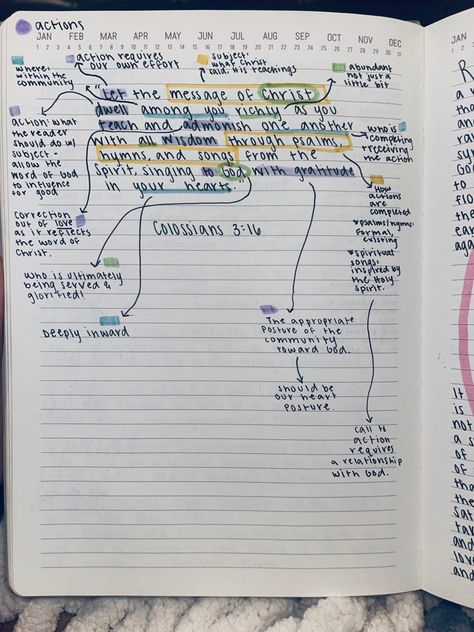 actions
JAN FEB MAR APR MAY JUN JUL AUG SEP OCT NOV DEC
1 2 3 4 5 6 7 8 9 10 11 12 13 14 15 16 17 18 19 20 21 22 23 24 25 26 27 28 29 30 31
where:
within the
community
action requires
our own effort
subject:
what Christ
said. His teachings
abundant
not just a
little bit
"Let the message of Christ
dwell among you richly as you
teach and admonish one another
with all wisdom through psalms,
hymns, and songs from the
Spirit, singing to God with gratitude
in your hearts."
Colossians 3:16
action: what
the reader
should do w/
subject -
allow the
word of God
to influence
for good
correction
out of love
as it reflects
the word of
Christ.
who is ultimately
being served &
glorified!
Deeply inward
who is
competing
+ receiving
the action
How
actions
are
completed
*psalms/hymns:
formal,
existing
*spiritual
songs:
inspired by
the Holy
Spirit.
The appropriate
posture of the
community
toward God.
should be
our heart
posture.
call to
action
requires
a relationship
with God.